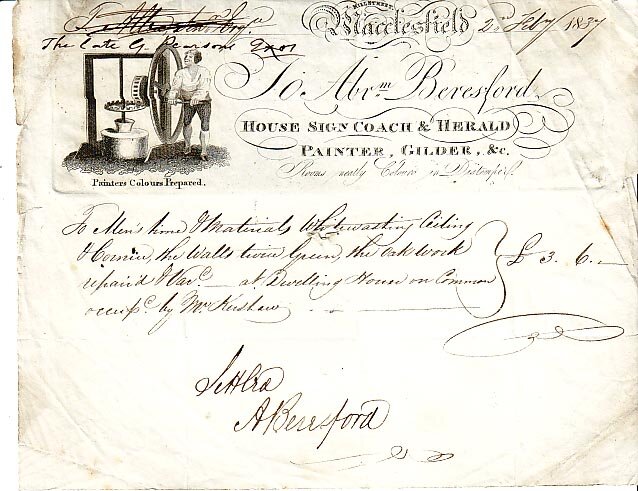 Millstreet,
Macclesfield 2nd Feby 1837
The Late G. Pearsons Exors
To Abrm Beresford.
HOUSE SIGN COACH & HERALD
PAINTER, GILDER, &c.
Rooms neatly Colour'd in Distemper.
Painters Colours Prepared.
To Men's time & Materials Whitewashing Ceiling
& Cornice, the Walls twice Green, the oak work
repaird & Varc. — at Dwelling House on Common
occupd. by Mr Kershaw
£ 3. 6. —
Settled
A Beresford